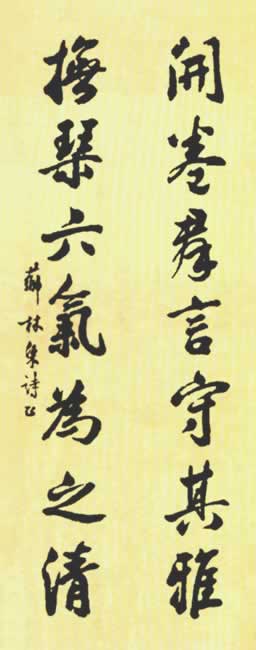 開卷群言守其雅
撫琴六氣為之清
薛林集詩正